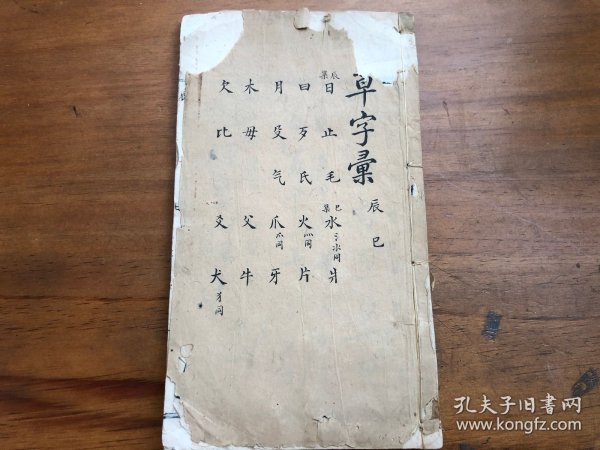 草字彙
辰巳
辰集 日止毛 巳集 水 氵氺同 爿
曰歹氏 火 灬同 片
月殳气 爪 爫同 牙
木毋 父牛
欠比 爻犬 犭同
孔夫子旧书网
www.kongfz.com